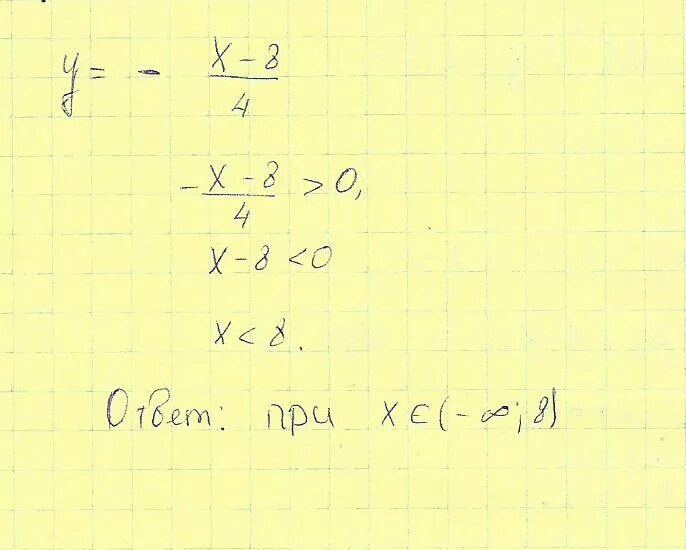 y = - (x-8)/4
-(x-8)/4 > 0,
x-8 < 0
x < 8.
Ответ: при x∈(-∞; 8)